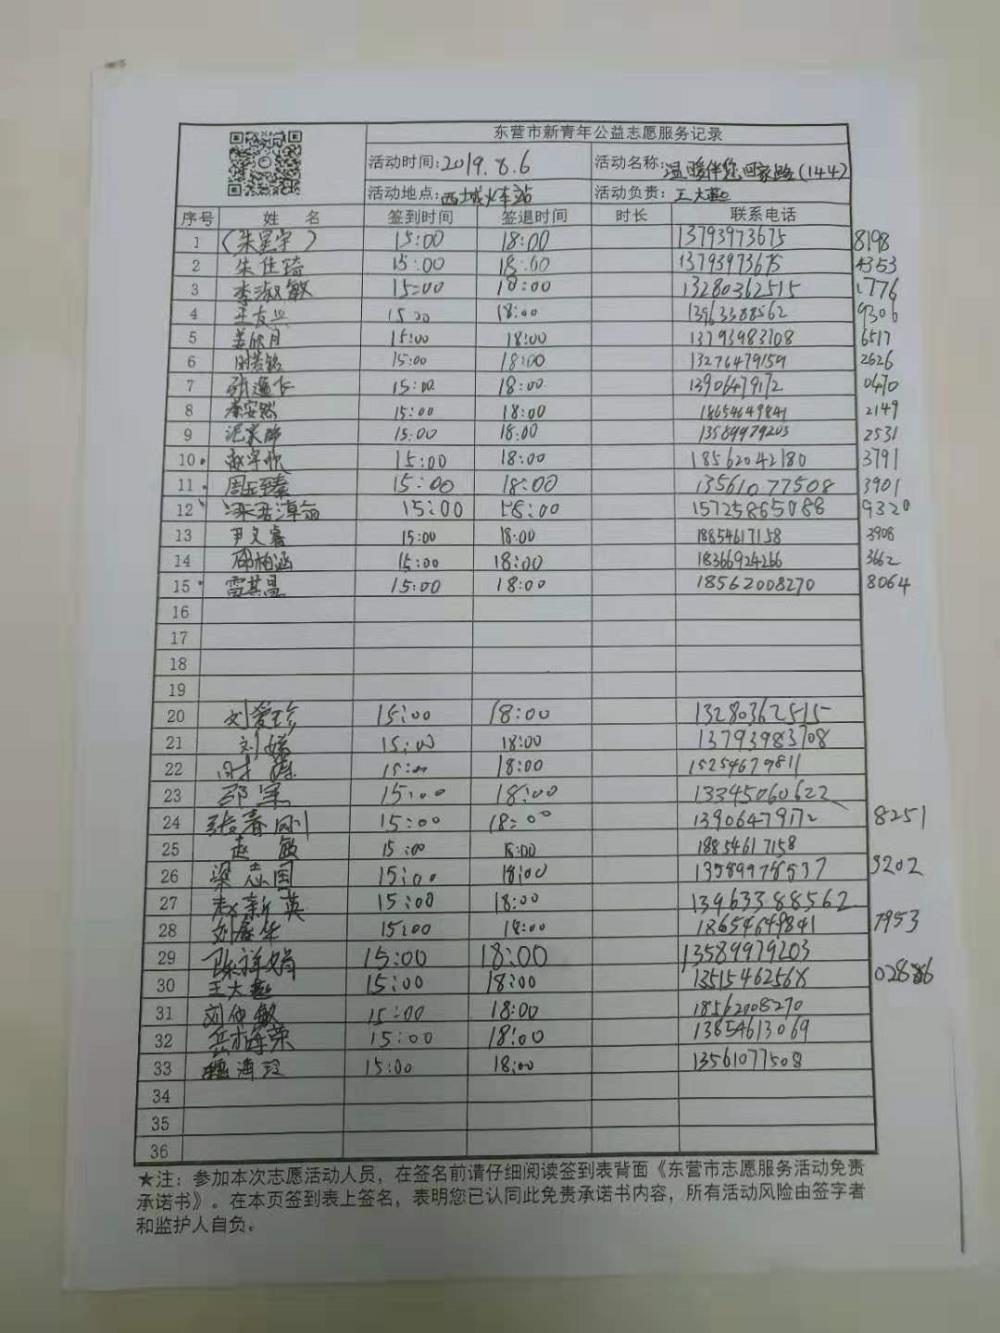 东营市新青年公益志愿服务记录
活动时间:2019.8.6 活动名称:温暖伴您回家路(144)
活动地点:西城火车站 活动负责:王大赳
序号 姓 名 签到时间 签退时间 时长 联系电话
1 (朱星宇) 15:00 18:00 13793973675 8198
2 朱佳琦 15:00 18:00 13793973675 4353
3 李淑敏 15:00 18:00 13280362515 1776
4 王友兴 15:00 18:00 13963388562 9306
5 姜欣月 15:00 18:00 13793983708 6517
6 15:00 18:00 13276479159 2626
7 15:00 18:00 13906479172 0470
8 秦安然 15:00 18:00 18654649841 2149
9 15:00 18:00 13589979203 2531
10 赵宇欣 15:00 18:00 18562042180 3791
11 周钰臻 15:00 18:00 13561077508 3901
12 15:00 18:00 15725865088 9320
13 尹文睿 15:00 18:00 18854617158 3908
14 邵柏涵 15:00 18:00 18366924266 3662
15 雷其昌 15:00 18:00 18562008270 8064
16
17
18
19
20 刘爱珍 15:00 18:00 13280362515
21 刘婷 15:00 18:00 13793983708
22 15:00 18:00 15254679811
23 邵军 15:00 18:00 13345060622
24 张春刚 15:00 18:00 13906479172 8251
25 赵敏 15:00 18:00 18854617158
26 梁志国 15:00 18:00 13589978537 3202
27 赵新英 15:00 18:00 13963388562
28 刘春华 15:00 18:00 18654649841 7953
29 陈祥娟 15:00 18:00 13589979203
30 王大赳 15:00 18:00 13515462568 02886
31 刘仲敏 15:00 18:00 18562008270
32 15:00 18:00 13854613069
33 15:00 18:00 13561077508
34
35
36
★注：参加本次志愿活动人员，在签名前请仔细阅读签到表背面《东营市志愿服务活动免责
承诺书》。在本页签到表上签名，表明您已认同此免责承诺书内容，所有活动风险由签字者
和监护人自负。